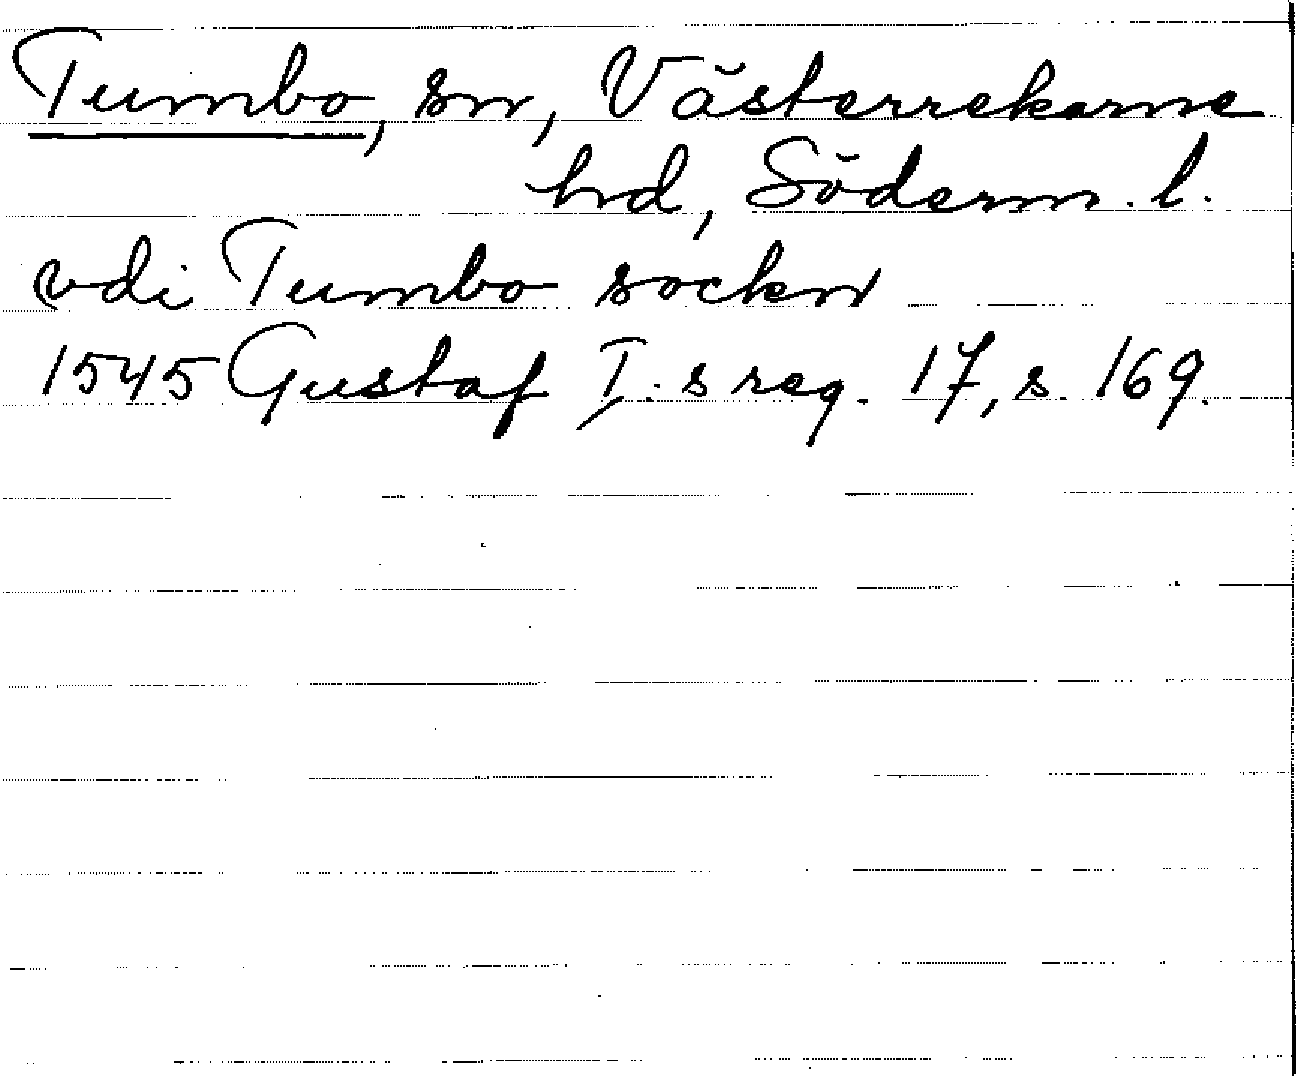 Tumbo, sn, Västerrekarne
hd, Söderm. l.
vdi Tumbo sockn
1545 Gustaf I.s reg. 17, s. 169.